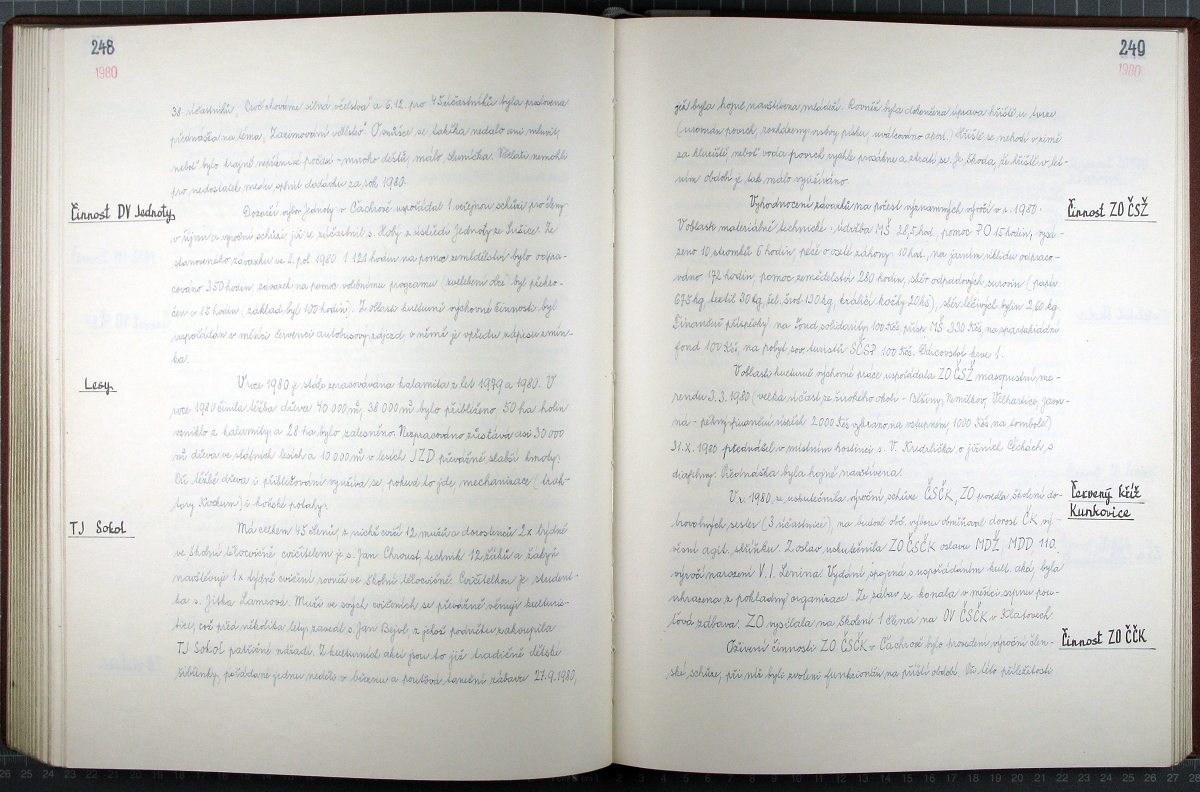 248
1980
38 účastníků „Cvoč chováme silná včelstva" a 6.12. pro 45 účastníků byla pražována
přednáška na téma „Zazimování včelstva". O snůšce se takřka nedalo ani mluvit,
neboť bylo krajně nepříznivé počasí - mnoho deštů, málo sluníčka. Včelaři nemohli
pro nedostatek medu splnit dodávku za rok 1980.
Činnost DV Jednoty
Dozorčí výbor Jednoty v Čachrově uspořádal 1 veřejnou schůzi pro členy
v říjnu a výroční schůzi, jíž se zúčastnil s. Holý z ústředí Jednoty ze Sušice. Ze
stanoveného závazku ve 2. pol. 1980 1 121 hodin na pomoc zemědělství bylo odpra-
cováno 350 hodin, závazek na pomoc volebnímu programu (zvelebení obcí) byl překro-
čen v 15 hodin (základ byl 100 hodin). Z oblasti kulturně výchovné činnosti byl
uspořádán v měsíci červenci autobusový zájezd, o němž je vpředu zápisu zmín-
ka.
Lesy
V roce 1980 je stále zpracovávána kalamita z let 1979 a 1980. V
roce 1980 činila těžba dřeva 40 000 m³, 38 000 m³ bylo přiblíženo. 50 ha holin
vzniklo z kalamity a 28 ha bylo zalesněno. Nezpracováno zůstává asi 30 000
m³ dřeva ve státních lesích a 10 000 m³ v lesích JZD převážně slabší hmoty.
Při těžbě dřeva i přibližování využívá se, pokud to jde, mechanizace (trak-
tory, Kockum) i koňské potahy.
TJ Sokol
Má celkem 45 členů, z nichž cvičí 12 mužů a dorostenců 2 x týdně
ve školní tělocvičně cvičitelem je s. Jan Chroust, technik. 12 žáků a žákyň
navštěvuje 1 x týdně cvičení rovněž ve školní tělocvičně. Cvičitelkou je student-
ka s. Jitka Lamzová. Muži ve svých cvičeních se převážně věnují kulturis-
tice, což před několika lety zavedl s. Jan Bejvl, z jehož podnětu zakoupila
TJ Sokol patřičné nářadí. Z kulturních akcí jsou to již tradičně dětské
šibřinky, pořádané jednu neděli v březnu a pouťová taneční zábava 27.9.1980,
249
1980
jež byla hojně navštívena mládeží. Rovněž byla dokončena úprava hřiště u tvrze
(urovnán povrch, rozhrnuty vrstvy písku, uválcováno apod.). Hřiště se nehodí v zimě
za kluziště, neboť voda povrch rychle prosákne a ztratí se. Je škoda, že hřiště v let-
ním období je tak málo využíváno.
Činnost ZO ČSŽ
Vyhodnocení závazků na počest významných výročí v r. 1980.
V oblasti materiálně technické: údržba MŠ 28,5 hod., pomoc PO 15 hodin, vysá-
zeno 10 stromků 6 hodin, péče o ostř. záhony 10 hod., na jarním úklidu odpraco-
váno 172 hodin, pomoc zemědělství 280 hodin, sběr odpadových surovin (papír
675 kg, textil 30 kg, žel. šrot 130 kg, králičí kožky 20 ks), sběr léčivých bylin 2,60 kg.
Finanční příspěvky na Fond solidarity 100 Kčs, přísp. MŠ 330 Kčs, na spartakiádní
fond 100 Kčs, na pobyt sov. turistů SČSP 100 Kčs. Dárcovství krve 1.
V oblasti kulturně výchovné práce uspořádala ZO ČSŽ masopustní me-
rendu 3.3.1980 (velká účast ze širokého okolí - Běšiny, Nemilkov, Velhartice, Javor-
ná - pěkný finanční úspěch 2 000 Kčs vybráno na vstupném, 1 000 Kčs na tombole).
31. X. 1980 přednášel v místním hostinci s. V. Krdlička o jižních Čechách s
diapozitivy. Přednáška byla hojně navštívena.
Červený kříž
Kunkovice
V r. 1980 se uskutečnila výroční schůze ČSČK, ZO provedla školení do-
brovolných sester (3 účastnice), na budově obč. výboru obměňoval dorost ČK vý-
věsní agit. skříňku. Z oslav uskutečnila ZO ČSČK oslavu MDŽ, MDD, 110.
výročí narození V. I. Lenina. Vydání spojená s uspořádáním kult. akcí, byla
uhrazena z pokladny organizace. Ze zábav se konala v měsíci srpnu pou-
ťová zábava. ZO vysílala na školení 1 člena na OV ČSČK v Klatovech.
Činnost ZO ČČK
Oživení činnosti ZO ČSČK v Čachrově bylo provedení výroční člen-
ské schůze, při níž byli zvoleni funkcionáři na příští období. Při této příležitosti